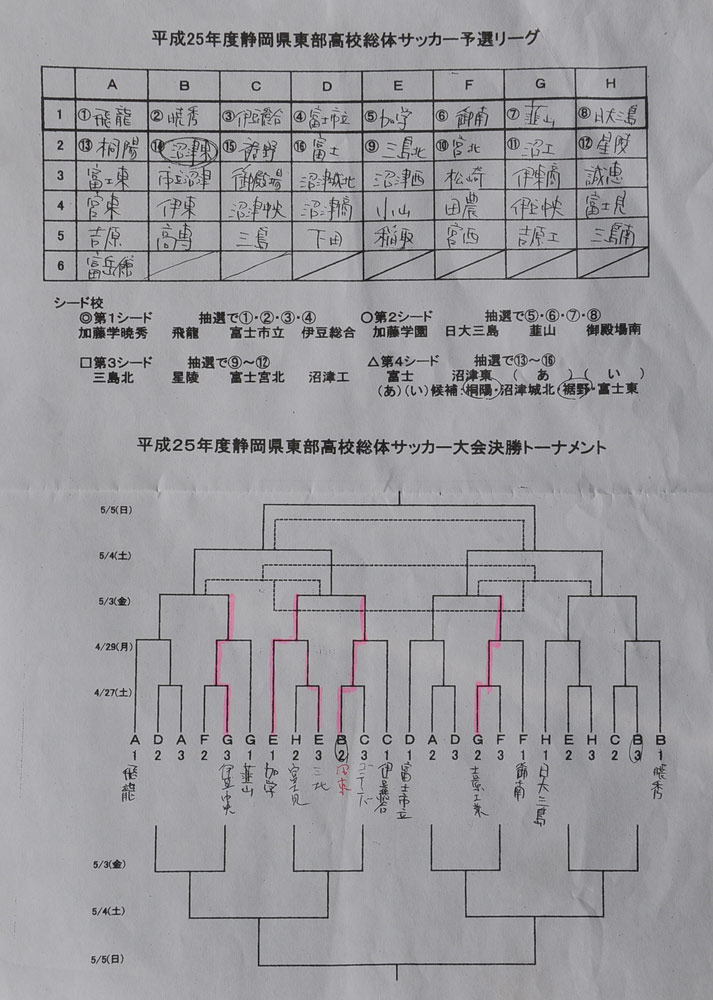 平成25年度静岡県東部高校総体サッカー予選リーグ
A B C D E F G H
1 ①飛龍 ②暁秀 ③伊豆総合 ④富士市立 ⑤加学 ⑥御南 ⑦韮山 ⑧日大三島
2 ⑬桐陽 ⑭沼津東 ⑮裾野 ⑯富士 ⑨三島北 ⑩宮北 ⑪沼工 ⑫星陵
3 富士東 市立沼津 御殿場 沼津城北 沼津西 松崎 伊東商 誠恵
4 宮東 伊東 沼津中央 沼津商 小山 田農 伊豆中央 富士見
5 吉原 高専 三島 下田 稲取 宮西 吉原工 三島南
6 富岳館
シード校
◎第1シード 抽選で①・②・③・④ ○第2シード 抽選で⑤・⑥・⑦・⑧
加藤学暁秀 飛龍 富士市立 伊豆総合 加藤学園 日大三島 韮山 御殿場南
□第3シード 抽選で⑨～⑫ △第4シード 抽選で⑬～⑯
三島北 星陵 富士宮北 沼津工 富士 沼津東 (あ) (い)
(あ)(い)候補・桐陽・沼津城北・裾野・富士東
平成25年度静岡県東部高校総体サッカー大会決勝トーナメント
5/5(日)
5/4(土)
5/3(金)
4/29(月)
4/27(土)
A D A F G G E H E B C C D A D G F F H E H C B B
1 2 3 2 3 1 1 2 3 2 3 1 1 2 3 2 3 1 1 2 3 2 3 1
飛龍 伊豆中央 韮山 加学 富士見 三北 伊豆総合 富士市立 吉原工業 御南 日大三島 暁秀
5/3(金)
5/4(土)
5/5(日)